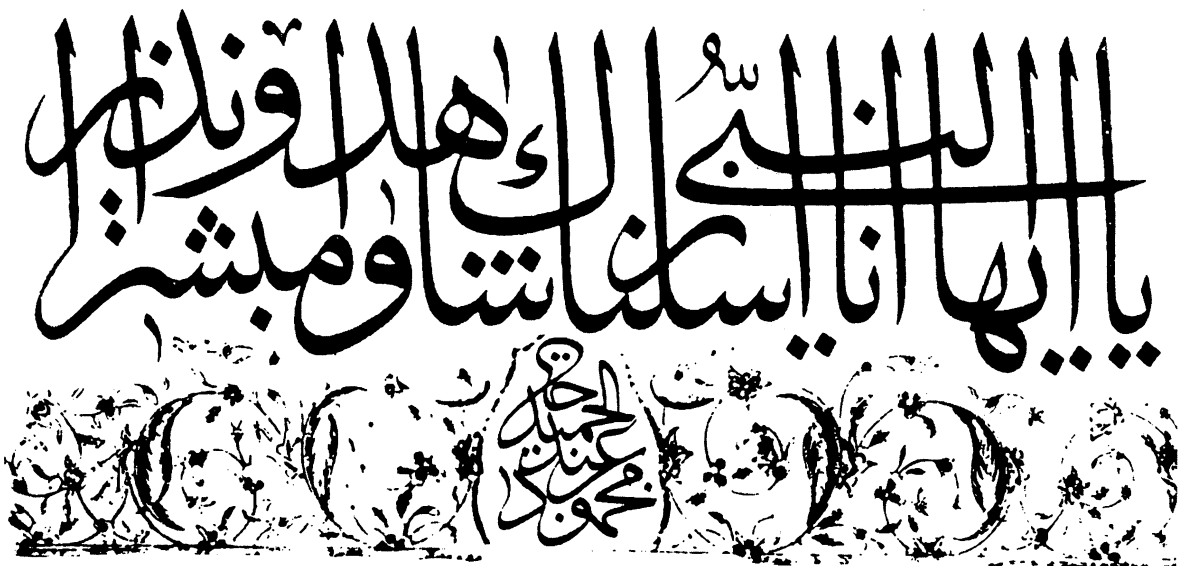 يا ايها النبي انا ارسلناك شاهدا ومبشرا ونذيرا
محمود
عبد
الحميد